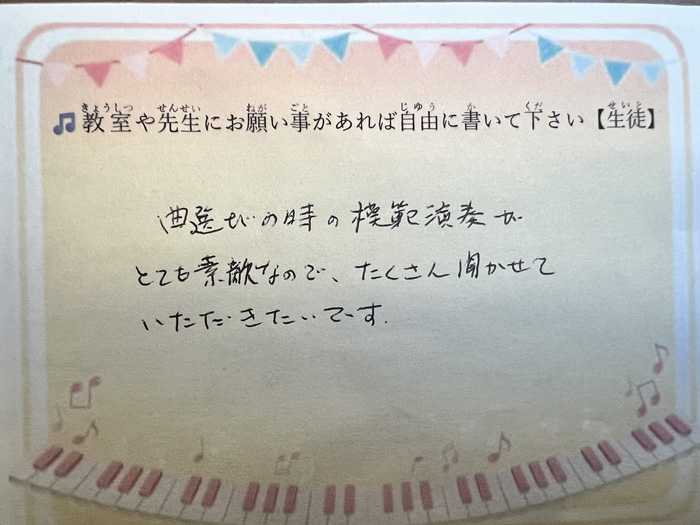 教室や先生にお願い事があれば自由に書いて下さい【生徒】
曲選びの時の模範演奏が
とても素敵なので、たくさん聞かせて
いただきたいです.